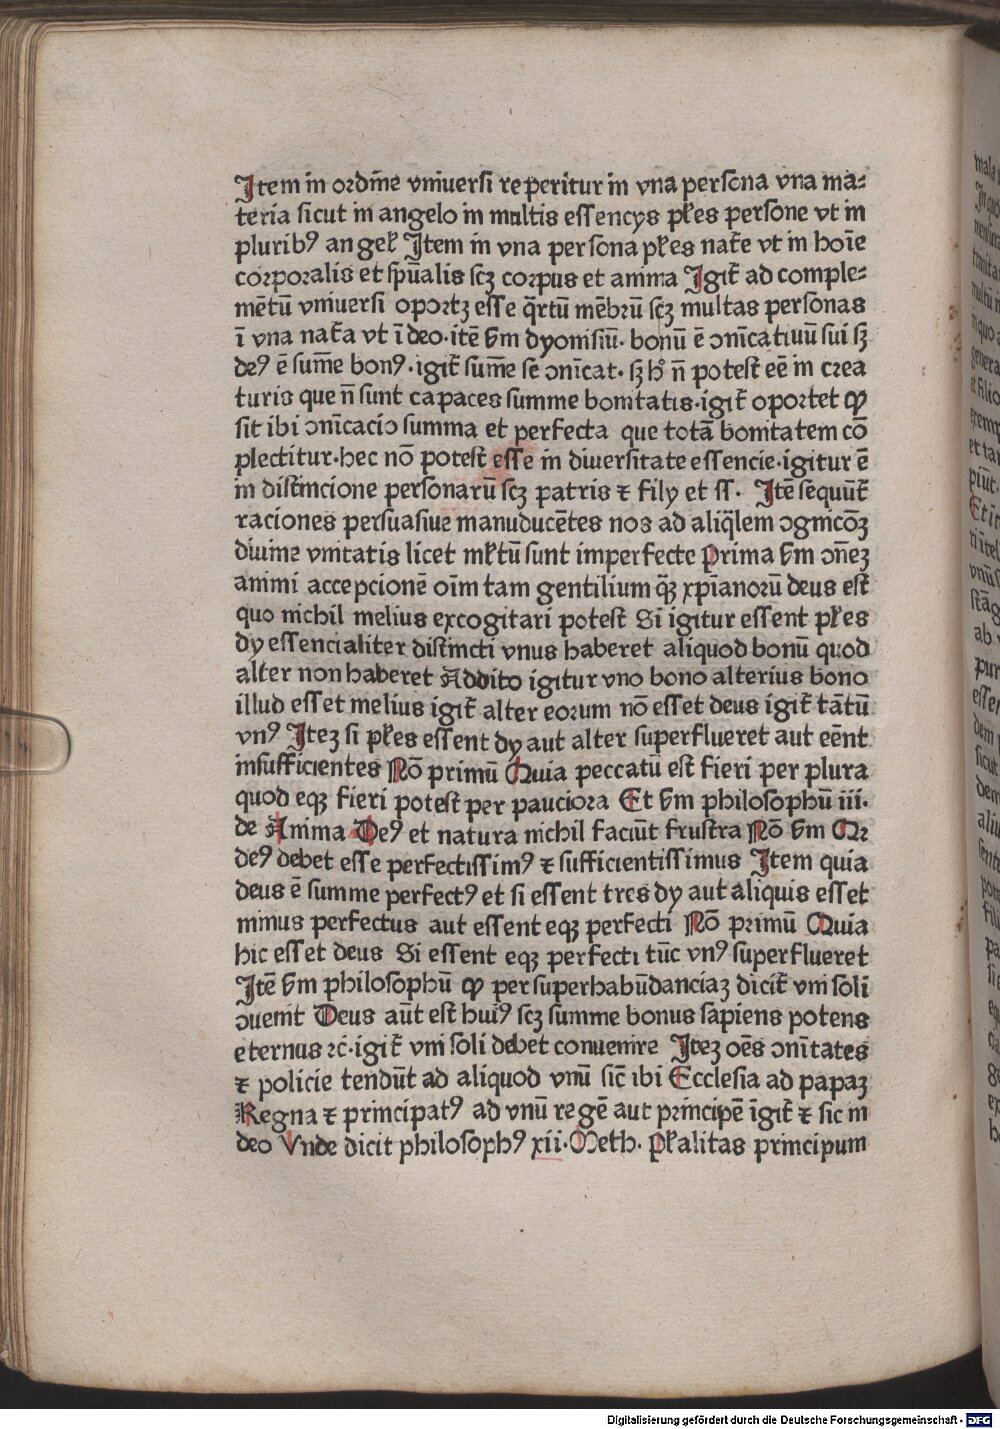 Item in ordīne vniuersi reperitur in vna persona vna ma⸗
teria sicut in angelo in multis essencys pl̄es persone vt in
pluribꝰ angel̄ Item in vna persona pl̄es nat̄e vt in hoīe
corporalis et sp̄ualis scꝫ corpus et anima Igit̄ ad comple⸗
mētū vniuersi oportꝫ esse q̄rtū mēbrū scꝫ multas personas
ī vna nat̄a vt ī deo·itē ẜm dyonisiū· bonū ē ↄnīcatiuū sui sꝫ
deꝰ ē sum̄e bonꝰ·igit̄ sum̄e se ↄnīcat· sꝫ hͦ n̄ potest eē in crea
turis que n̄ sunt capaces summe bonitatis·igit̄ oportet ꝙ
sit ibi ↄnīcacio summa et perfecta que totā bonitatem cō
plectitur·hec nō potest esse in diuersitate essencie·igitur ē
in distinctione personarū scꝫ patris ⁊ fily et ss· Itē sequūt̄
raciones persuasiue manuducētes nos ad aliq̄lem ↄgnicōꝫ
diuine vnitatis licet ml̄tū sunt imperfecte Prima ẜm ↄn̄eꝫ
animi accepcionē oīm tam gentilium q̄ꝫ xp̄ianorū deus est
quo nichil melius excogitari potest Si igitur essent pl̄es
dy essencialiter distincti vnus haberet aliquod bonū quod
alter non haberet Addito igitur vno bono alterius bono
illud esset melius igit̄ alter eorum nō esset deus igit̄ tātū
vnꝰ Iteꝫ si pl̄es essent dy aut alter superflueret aut eēnt
insufficientes Nō primū Quia peccatū est fieri per plura
quod eqꝫ fieri potest per pauciora Et ẜm philosophū iii·
de Anima Deꝰ et natura nichil faciūt frustra Nō ẜm Qꝛ
deꝰ debet esse perfectissimꝰ ⁊ sufficientissimus Item quia
deus ē summe perfectꝰ et si essent tres dy aut aliquis esset
minus perfectus aut essent eqꝫ perfecti Nō primū Quia
hic esset deus Si essent eqꝫ perfecti tūc vnꝰ superflueret
Itē ẜm philosophū ꝙ per superhabūdanciaꝫ dicit̄ vni soli
ↄuenit Deus aūt est huiꝰ scꝫ summe bonus sapiens potens
eternus ⁊c̄·igit̄ vni soli debet conuenire Iteꝫ oēs ↄnītates
⁊ policie tendūt ad aliquod vnū sic̄ ibi Ecclesia ad papaꝫ
Regna ⁊ principatꝰ ad vnū regē aut principē īgit̄ ⁊ sic in
deo Vnde dicit philosophꝰ xii·Meth· Pl̄alitas principum
Digitalisierung gefördert durch die Deutsche Forschungsgemeinschaft - DFG